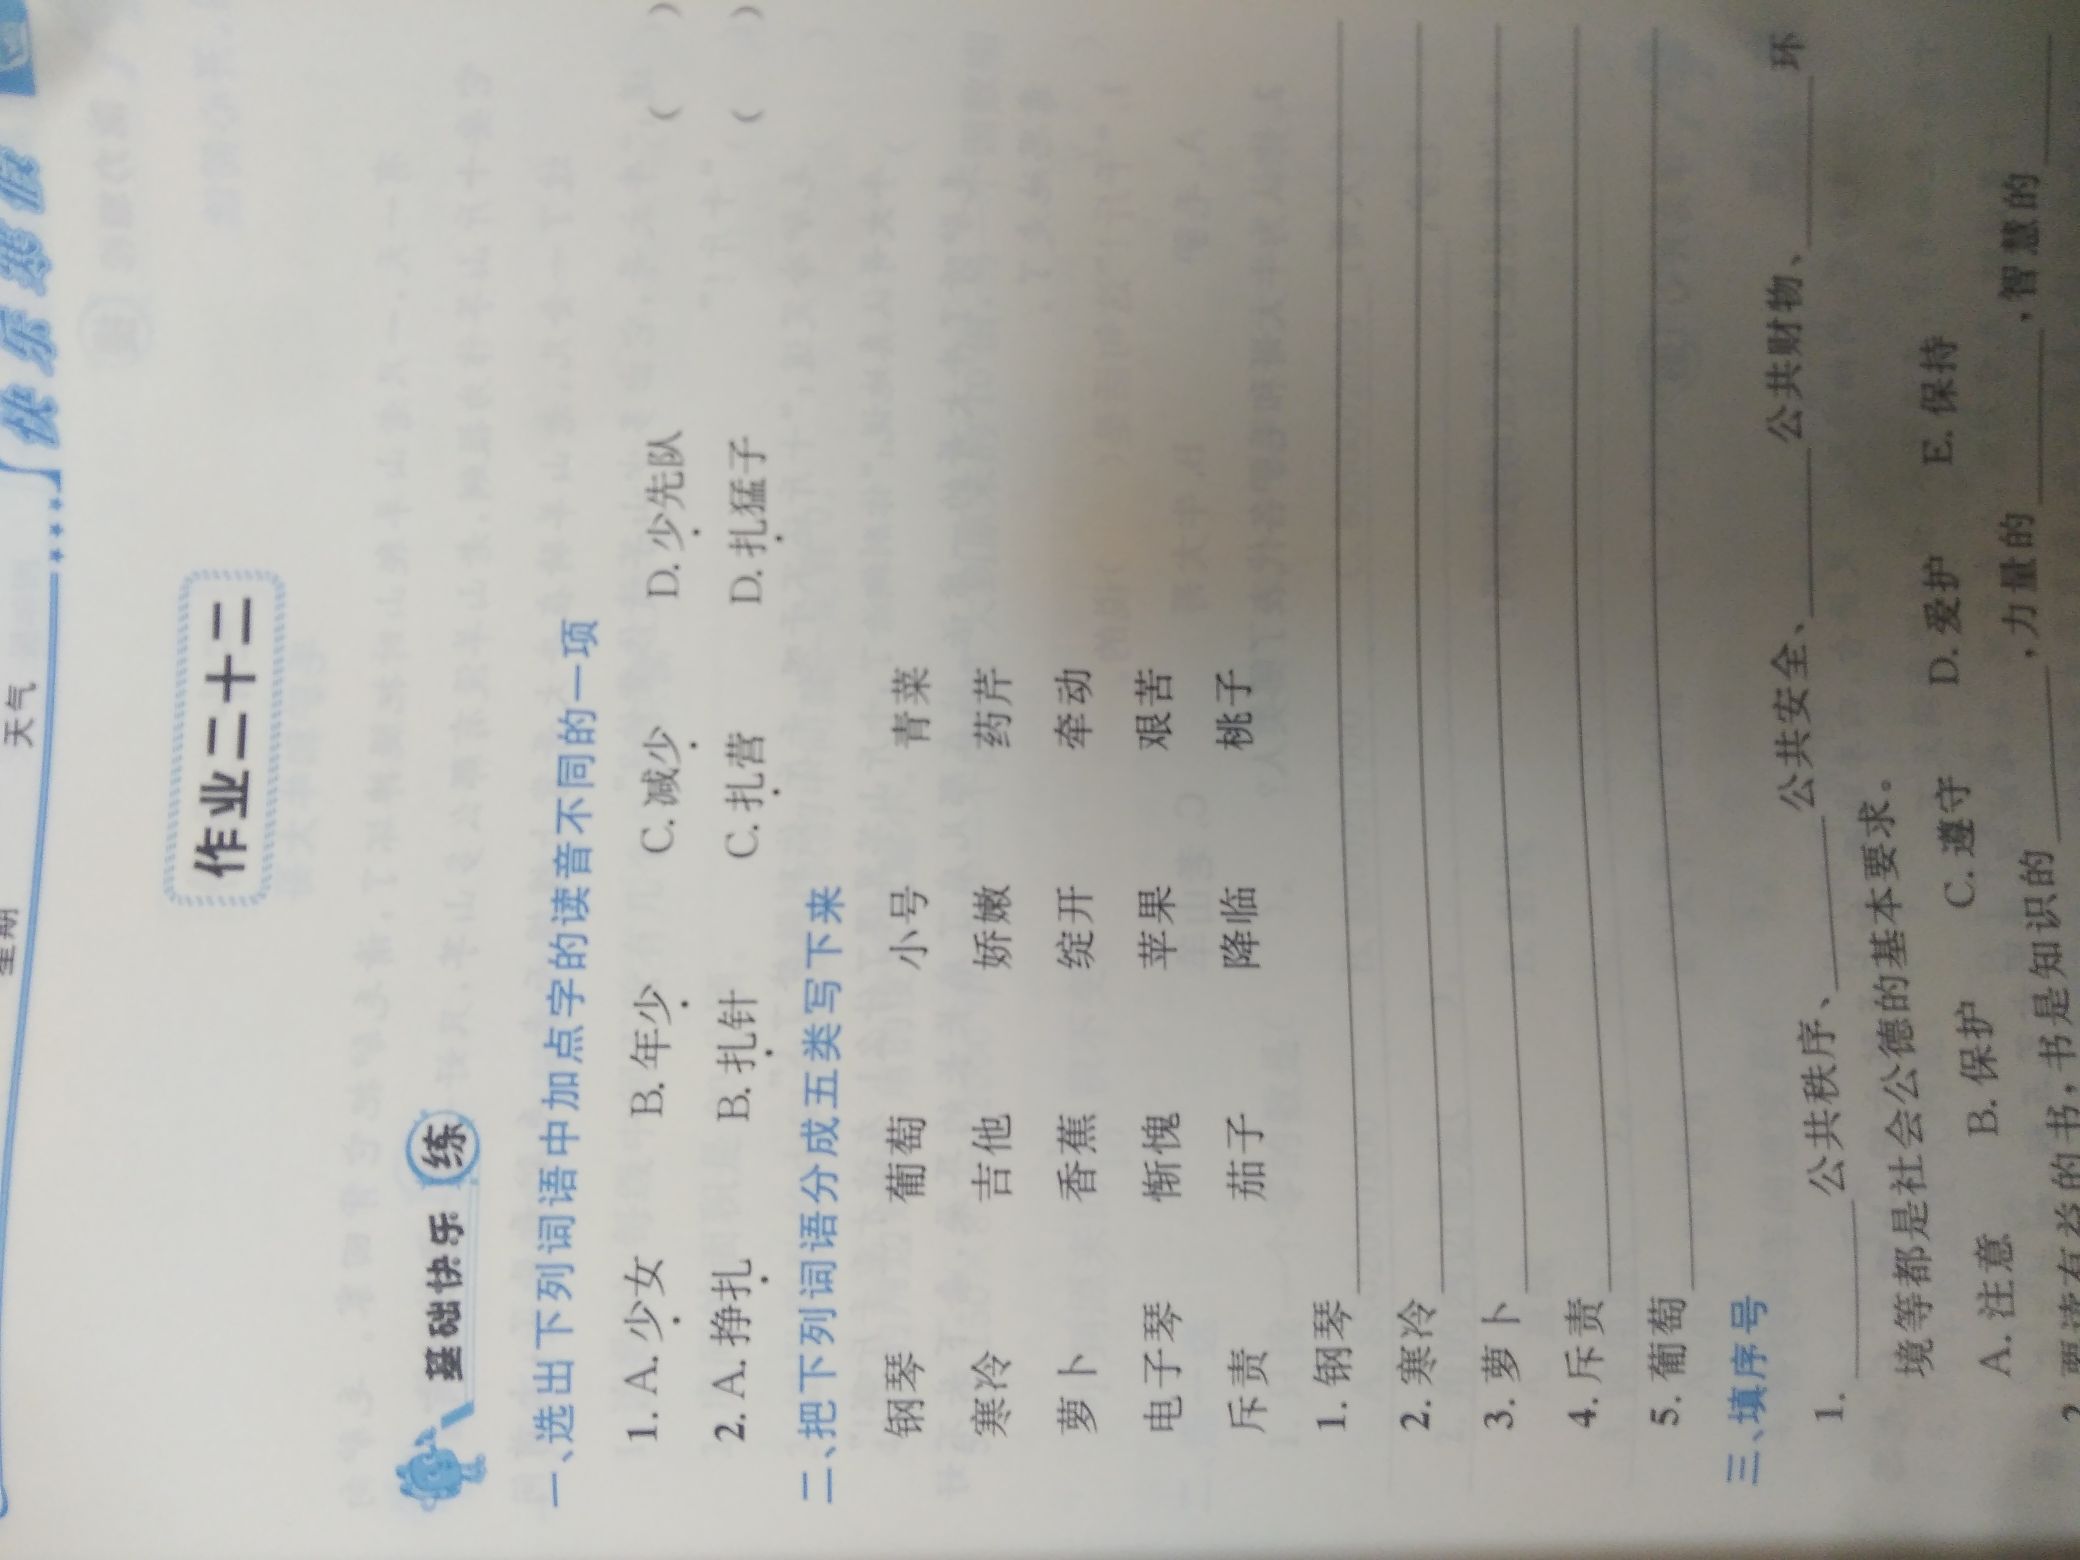 快乐寒假
星期 天气
作业二十二
基础快乐 练
一、选出下列词语中加点字的读音不同的一项
1. A. 少女 B. 年少 C. 减少 D. 少先队 ( )
2. A. 挣扎 B. 扎针 C. 扎营 D. 扎猛子 ( )
二、把下列词语分成五类写下来
钢琴 葡萄 小号 青菜
寒冷 吉他 娇嫩 药芹
萝卜 香蕉 绽开 牵动
电子琴 惭愧 苹果 艰苦
斥责 茄子 降临 桃子
1. 钢琴
2. 寒冷
3. 萝卜
4. 斥责
5. 葡萄
三、填序号
1. ______公共秩序、______公共安全、______公共财物、______环
境等都是社会公德的基本要求。
A. 注意 B. 保护 C. 遵守 D. 爱护 E. 保持
2. 要读有益的书，书是知识的______，力量的______，智慧的______